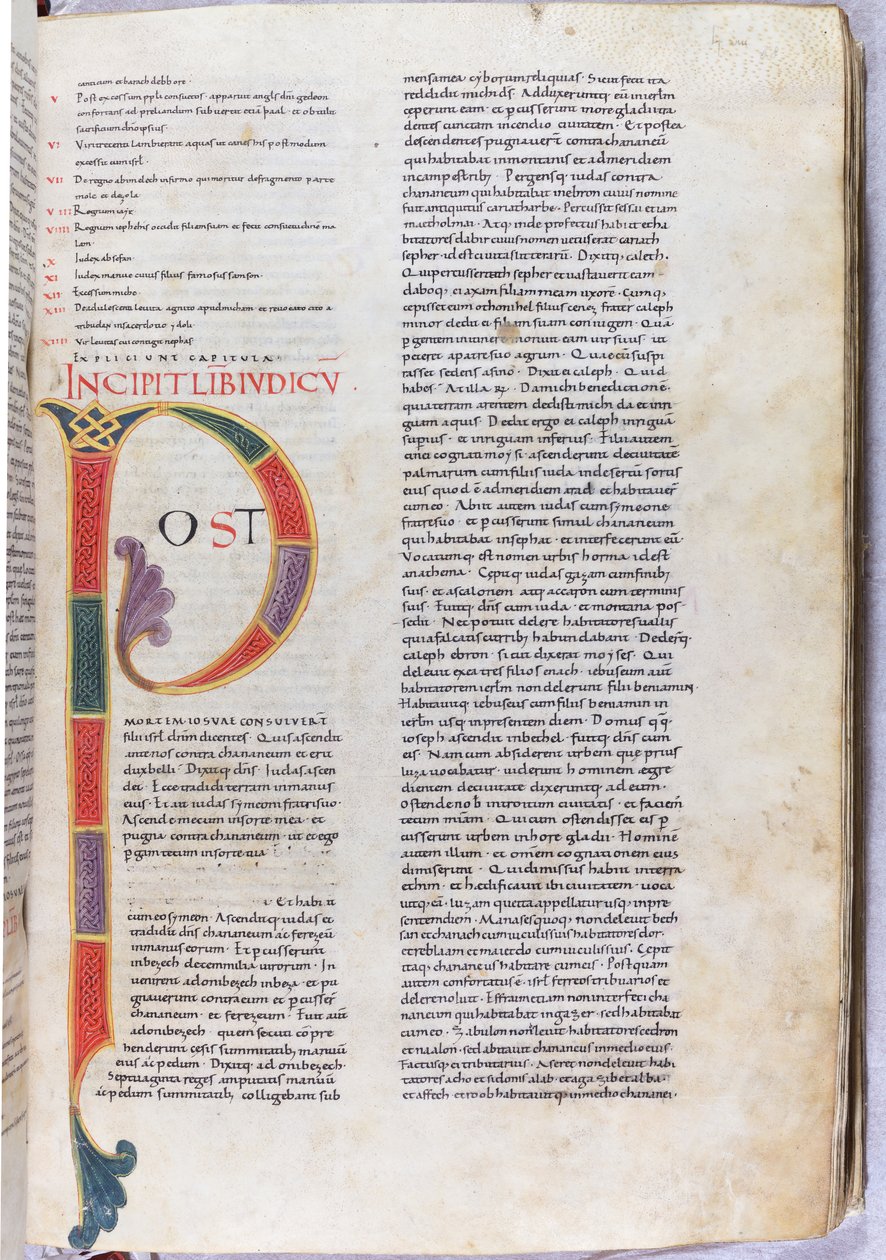 canticum et barach debbore ·
V Post excessum ppli consuetos · apparuit angls dni gedeon
confortans ad preliandum subvertit etiā baal · et obtulit
sacrificium dño ipsius ·
VI Viri trecenti lambierunt aquas ut canes his post modum
excessit cum isrl ·
VII De regno abimelech infirmo qui moritur defragmento parte
mole et dezola ·
VIII Regnum iayr
VIIII Regnum iepthehis occidit filiam suam et fecit consuetudinē ma
lam ·
X Iudex abesan ·
XI Iudex manue cuius filius famosus samson ·
XII Excessum micho
XIII De adulescenti levita agnito apud micham · et revocato cito a
tribu dan in sacerdotio y doli ·
XIIII Vir levitas cui contigit nephas
EXPLICIUNT CAPITULA ·
INCIPIT LIB IVDICV̄ ·
POST
MORTEM IOSVAE CONSVLVERT̄
filii isrl dnm dicentes · Quis ascendit
ante nos contra chananeum et erit
dux belli · Dixitq; dns · Iudas ascen
det · Ecce tradidi terram in manus
eius · Et ait iudas symeoni fratri suo ·
Ascende mecum in sorte mea · et
pugna contra chananeum · ut et ego
pergam tecum in sorte tua
· Et habiit
cum eo symeon · Ascenditq; iudas et
tradidit dns chananeum ac ferezeū
in manus eorum · Et p cusserunt
in bezech decem milia virorum · In
venerunt adonibezech in beza · et pu
gnaverunt contra eum et p cusser̄
chananeum · et ferezeum · Fuit aut̄
adonibezech · quem secuti cōpre
henderunt cesis summitatib; manuū
eius ac pedum · Dixit · adonibezech ·
Septuaginta reges amputatis manuū
ac pedum summitatib; colligebant sub
mensa mea cyborum reliquias · Sicut feci ita
reddidit michi ds · Adduxeruntq; eū in ierlm
ceperunt eam · et p cusserunt in ore gladii tra
dentes cunctam incendio civitatem · Et postea
descendentes pugnaverunt contra chananeū
qui habitabat in montanis et ad meridiem
in campestrib; · Pergensq; iudas contra
chananeum qui habitabat in ebron cuius nomen
fuit antiquitus cariatharbe · Percussit sesai et iam
maetholmai · Atq; inde profectus habiit et ha
bitatores dabir cuius nomen vetus erat cariath
sepher · id est civitas litterarū · Dixitq; caleth ·
Qui percusserit cariath sepher et vastaverit eam ·
dabo q; ei axam filiam meam uxorē · Cumq;
cepisset eum othonihel filius cenez frater caleph
minor dedit ei filiam suam coniugem · Quā
p gentem in itinere monuit eam vir suus · ut
peteret a patre suo agrum · Quae cū suspi
rasset sedens asino · Dixit ei caleph · Quid
habes · At illa R̷ · Da michi benedictionē ·
quia terram arentem dedisti michi da et inri
guam aquis · Dedit ergo ei caleph inriguū
superius · et inriguum inferius · Filii autem
cinei cognati moysi · ascenderunt de civitate
palmarum cum filiis iuda in desertū sortis
eius quod ē ad meridiem arad et habitaver̄
cum eo · Abiit autem iudas cum symeone
fratre suo · et p cusserunt simul chananeum
qui habitabat in sephat · et interfecerunt eū ·
Vocatumq; est nomen urbis horma id est
anathema · Cepitq; iudas gazam cum finib;
suis · et ascalonem atq; accaron cum terminis
suis · Fuitq; dns cum iuda · et montana pos-
sedit · Nec potuit delere habitatores vallis
quia falcatis currib; habundabant · Dederq;
caleph ebron · sicut dixerat moyses · Qui
delevit ex ea tres filios enach · iebuseum aut̄
habitatorem ierlm non delerunt filii beniamin ·
Habitavitq; iebuseus cum filiis beniamin in
ierlm usq; in presentem diem · Domus qq;
ioseph ascendit in bethel · fuitq; dns cum
eis · Nam cum absiderent urbem que prius
luza vocabatur · viderunt hominem egre
dientem de civitate dixeruntq; ad eum ·
Ostende nob̄ introitum civitatis · et faciem̄
tecum miām · Qui cum ostendisset eis p
cusserunt urbem in ore gladii · Hominē
autem illum · et omēm cognationem eius
dimiserunt · Qui dimissus habiit in terra
ethim · et hedificavit ibi civitatem · voca
vitq; eā · luzam que ita appellatur usq; in pre
sentem diem · Manases quoq; non delevit beth
san et chanach cum viculis suis habitatores dor ·
et reblaam et maiedo cum viculis suis · Cepit
itaq; chananeus habitare cum eis · Postquam
autem confortatus ē · isrl fecit eos tributarios et
delere noluit · Effraim etiam non interfecit cha
naneum qui habitabat in gazer · sed habitabat
cum eo · Zabulon non delevit habitatores cedron
et naalon · sed abitavit chananeus in medio eius ·
Factusq; ei tributarius · Aser et non delevit habi
tatores acho et sidonis alab · et agazib et alba ·
et affech · et roob habitavitq; in medio chananei ·